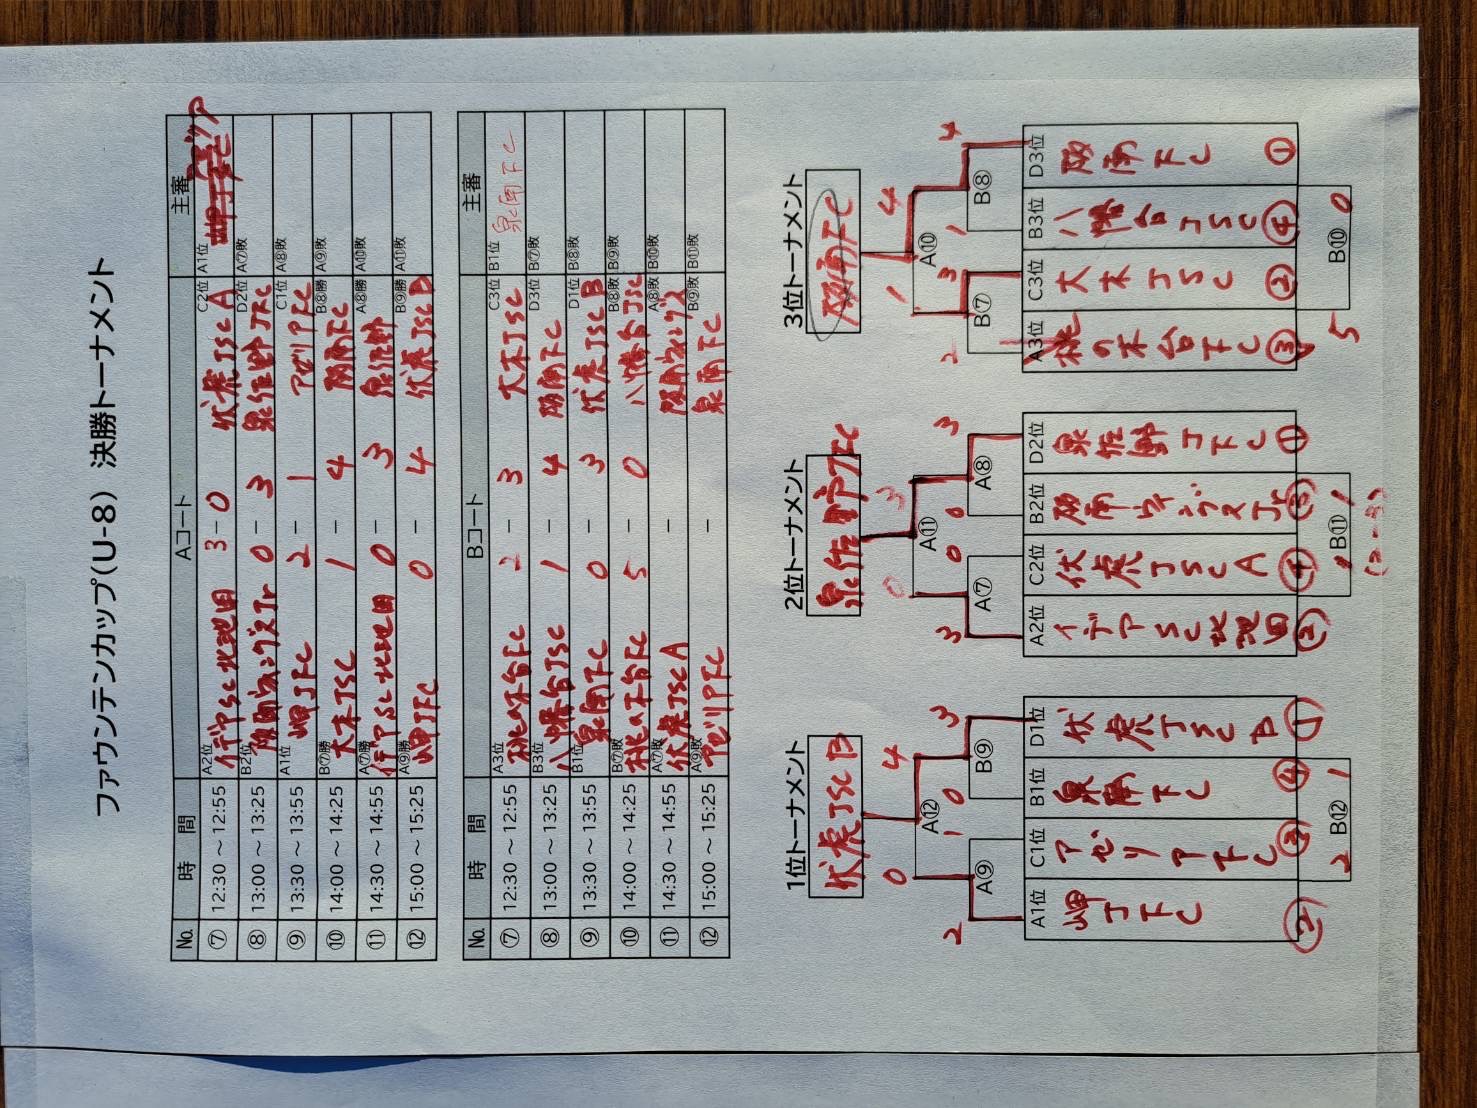 ファウンテンカップ(U-8) 決勝トーナメント
No. 時 間 Aコート 主審
⑦ 12:30 ～ 12:55 A2位 イデアSC北池田 3 - 0 C2位 伏虎JSC A A1位 アゼリア
⑧ 13:00 ～ 13:25 B2位 阪南ウィングスJr 0 - 3 D2位 泉佐野JFC A⑦敗
⑨ 13:30 ～ 13:55 A1位 岬JFC 2 - 1 C1位 アゼリアFC A⑧敗
⑩ 14:00 ～ 14:25 B⑦勝 大木JSC 1 - 4 B⑧勝 阪南FC A⑨敗
⑪ 14:30 ～ 14:55 A⑦勝 イデアSC北池田 0 - 3 A⑧勝 泉佐野 A⑩敗
⑫ 15:00 ～ 15:25 A⑨勝 岬JFC 0 - 4 B⑨勝 伏虎JSC B A⑪敗
No. 時 間 Bコート 主審
⑦ 12:30 ～ 12:55 A3位 桃の木台FC 2 - 3 C3位 大木JSC B1位 泉南FC
⑧ 13:00 ～ 13:25 B3位 八幡台JSC 1 - 4 D3位 阪南FC B⑦敗
⑨ 13:30 ～ 13:55 B1位 泉南FC 0 - 3 D1位 伏虎JSC B B⑧敗
⑩ 14:00 ～ 14:25 B⑦敗 桃の木台FC 5 - 0 B⑧敗 八幡台JSC B⑨敗
⑪ 14:30 ～ 14:55 A⑦敗 伏虎JSC A - A⑧敗 阪南ウィングス B⑩敗
⑫ 15:00 ～ 15:25 A⑨敗 アゼリアFC - B⑨敗 泉南FC B⑪敗
1位トーナメント
伏虎JSC B
0 4
A⑫
2 1 0 3
A⑨ B⑨
A1位 C1位 B1位 D1位
岬JFC アゼリアFC 泉南FC 伏虎JSC B
② ③ ④ ①
2 B⑫ 1
2位トーナメント
泉佐野JFC
0 3
A⑪
3 0 0 3
A⑦ A⑧
A2位 C2位 B2位 D2位
イデアSC北池田 伏虎JSC A 阪南ウィングスJr 泉佐野JFC
② ④ ③ ①
1 B⑪ 1
3位トーナメント
阪南FC
1 4
A⑩
2 3 1 4
B⑦ B⑧
A3位 C3位 B3位 D3位
桃の木台FC 大木JSC 八幡台JSC 阪南FC
③ ② ④ ①
5 B⑩ 0